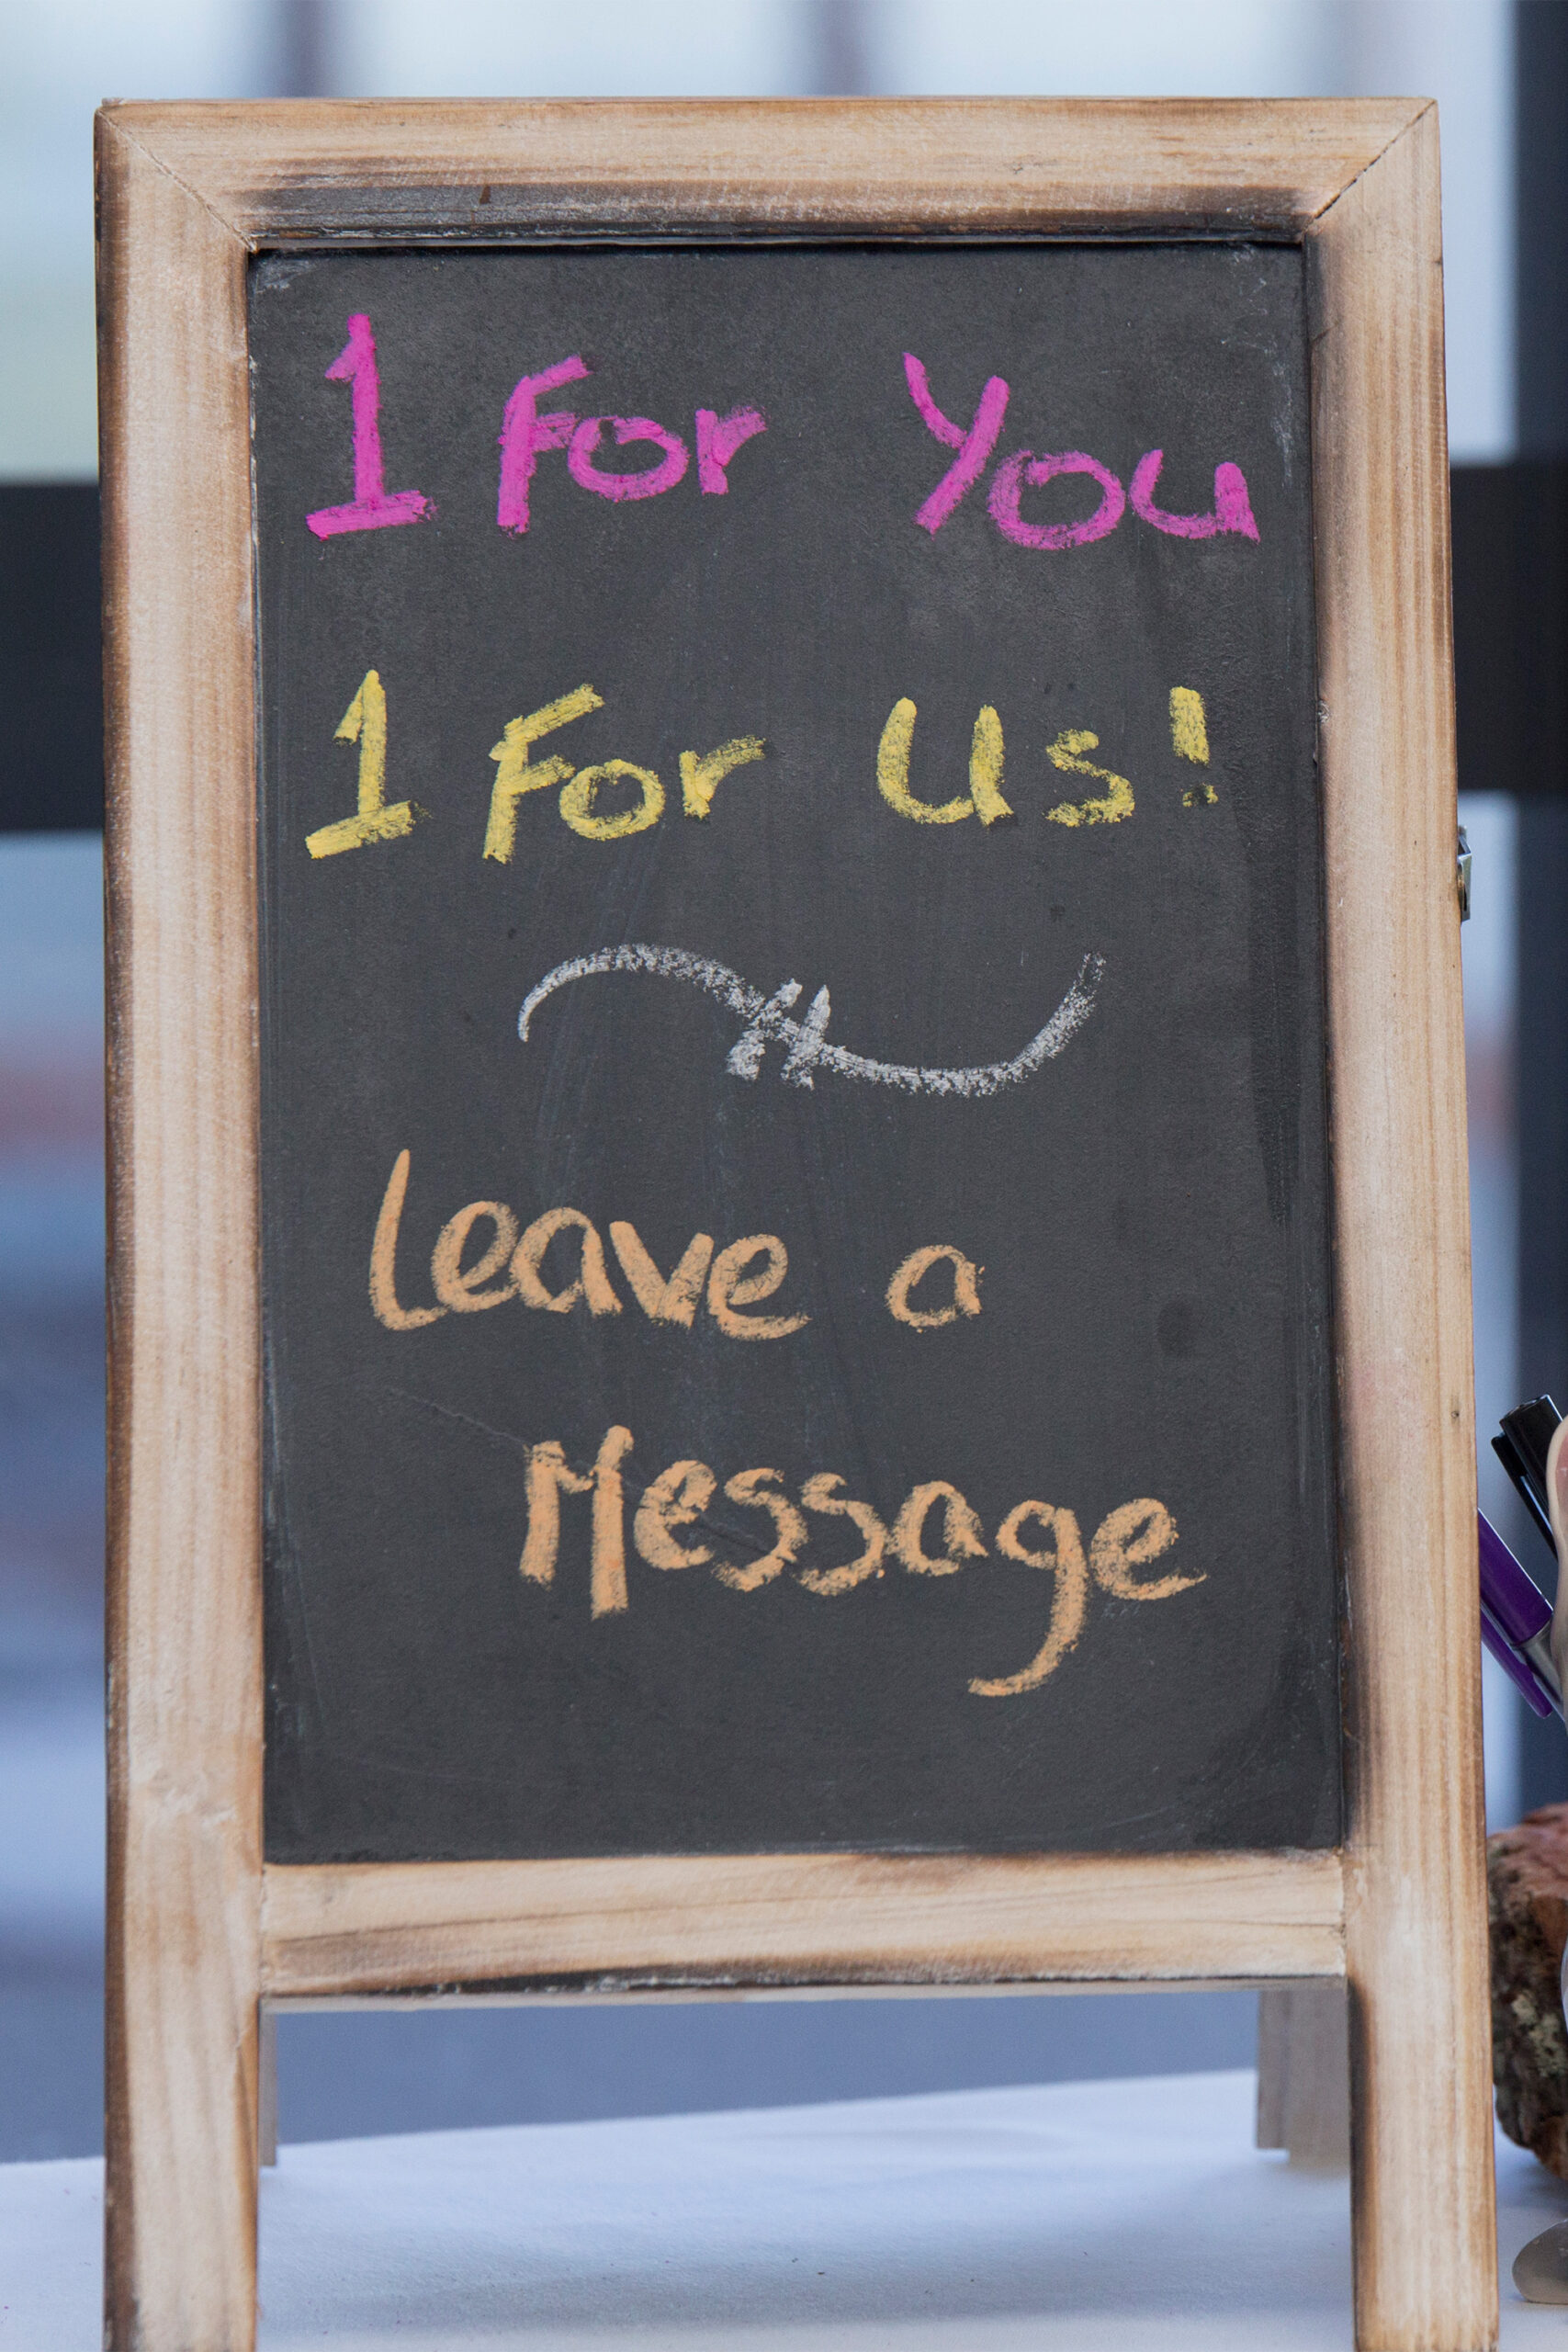 1 For You
1 For Us!
Leave a
Message